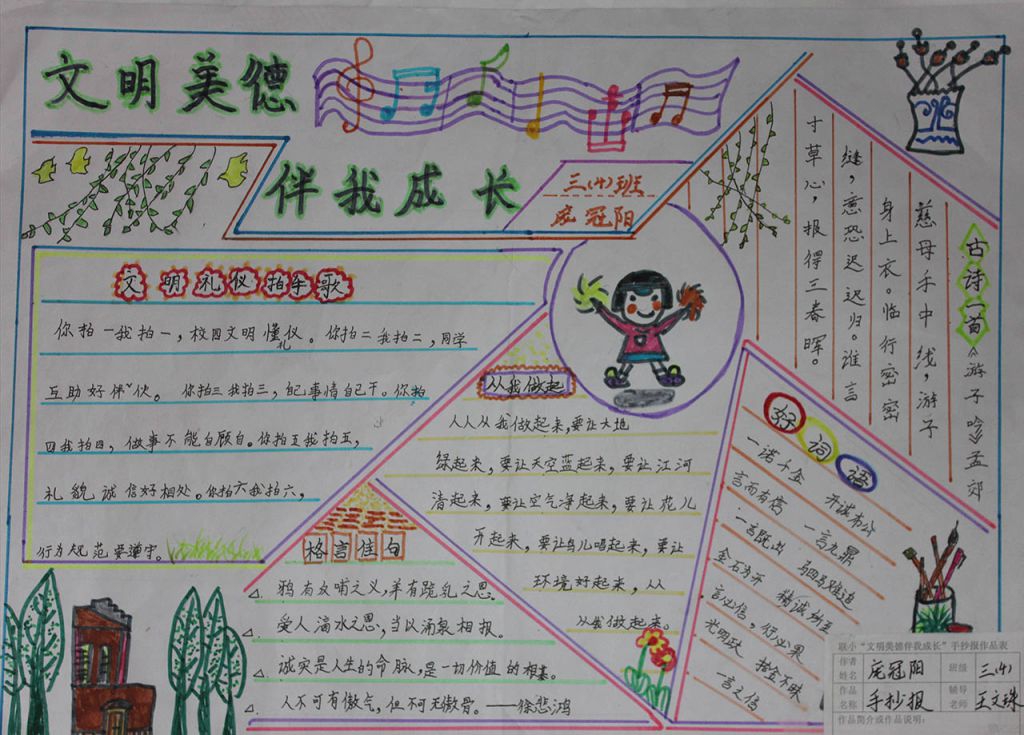 文明美德
伴我成长
三(4)班
庞冠阳
文明礼仪拍手歌
你拍一我拍一，校园文明懂礼仪。你拍二我拍二，同学
互助好伴伙。你拍三我拍三，自己事情自己干。你拍
四我拍四，做事不能自顾自。你拍五我拍五，
礼貌诚信好相处。你拍六我拍六，
行为规范要遵守。
从我做起
人人从我做起来，要让大地
绿起来，要让天空蓝起来，要让江河
清起来，要让空气净起来，要让花儿
开起来，要让鸟儿唱起来，要让
环境好起来，从
从我做起来。
格言佳句
鸦有反哺之义，羊有跪乳之恩。
受人滴水之恩，当以涌泉相报。
诚实是人生的命脉，是一切价值的根基。
人不可有傲气，但不可无傲骨。——徐悲鸿
古诗一首
游子吟 孟郊
慈母手中线，游子
身上衣。临行密密
缝，意恐迟迟归。谁言
寸草心，报得三春晖。
好词语
一诺千金 开诚布公
言而有信 一言九鼎
一言既出 驷马难追
金石为开 精诚所至
言必信，行必果
光明政 拾金不昧
一言之信
联小“文明美德伴我成长”手抄报作品表
作者姓名 庞冠阳 班级 三(4)
作品名称 手抄报 辅导老师 王文珠
作品简介或作品说明：